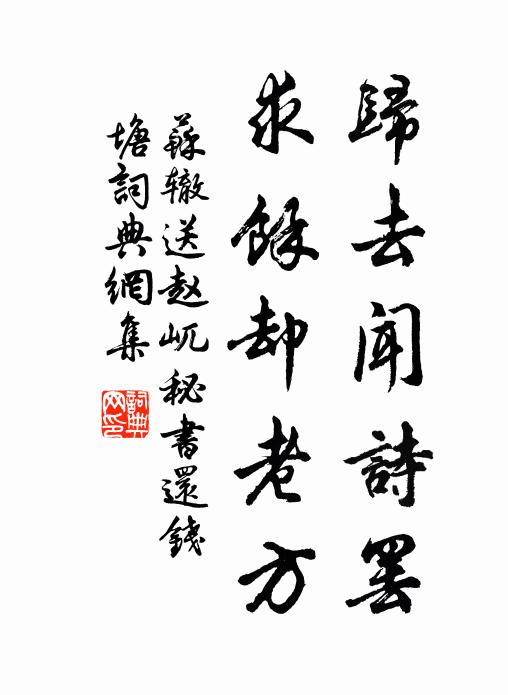 歸去闻詩罢
求餘却老方
蘇辙送赵屼秘書還錢
塘詞典網集
詞典
网印